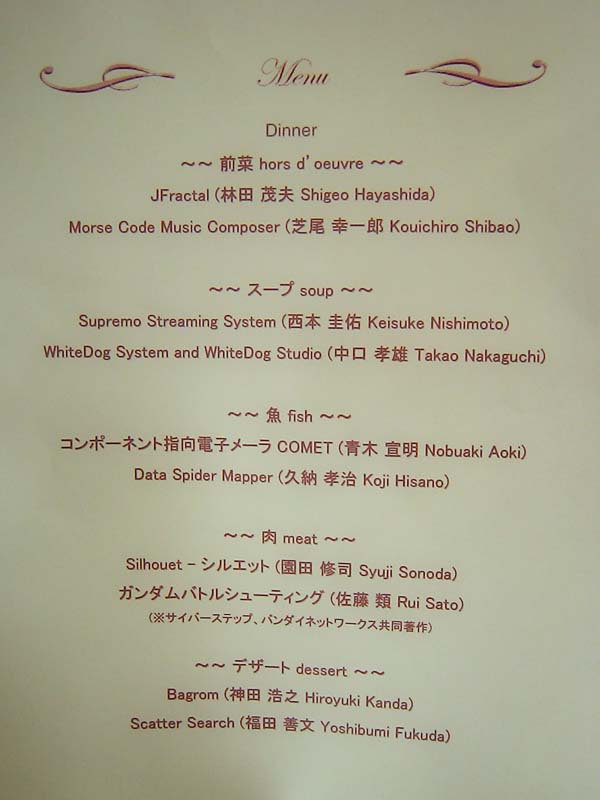 Menu
Dinner
～～ 前菜 hors d'oeuvre ～～
JFractal (林田 茂夫 Shigeo Hayashida)
Morse Code Music Composer (芝尾 幸一郎 Kouichiro Shibao)
～～ スープ soup ～～
Supremo Streaming System (西本 圭佑 Keisuke Nishimoto)
WhiteDog System and WhiteDog Studio (中口 孝雄 Takao Nakaguchi)
～～ 魚 fish ～～
コンポーネント指向電子メーラ COMET (青木 宣明 Nobuaki Aoki)
Data Spider Mapper (久納 孝治 Koji Hisano)
～～ 肉 meat ～～
Silhouet - シルエット (園田 修司 Syuji Sonoda)
ガンダムバトルシューティング (佐藤 類 Rui Sato)
(※サイバーステップ、バンダイネットワークス共同著作)
～～ デザート dessert ～～
Bagrom (神田 浩之 Hiroyuki Kanda)
Scatter Search (福田 善文 Yoshibumi Fukuda)